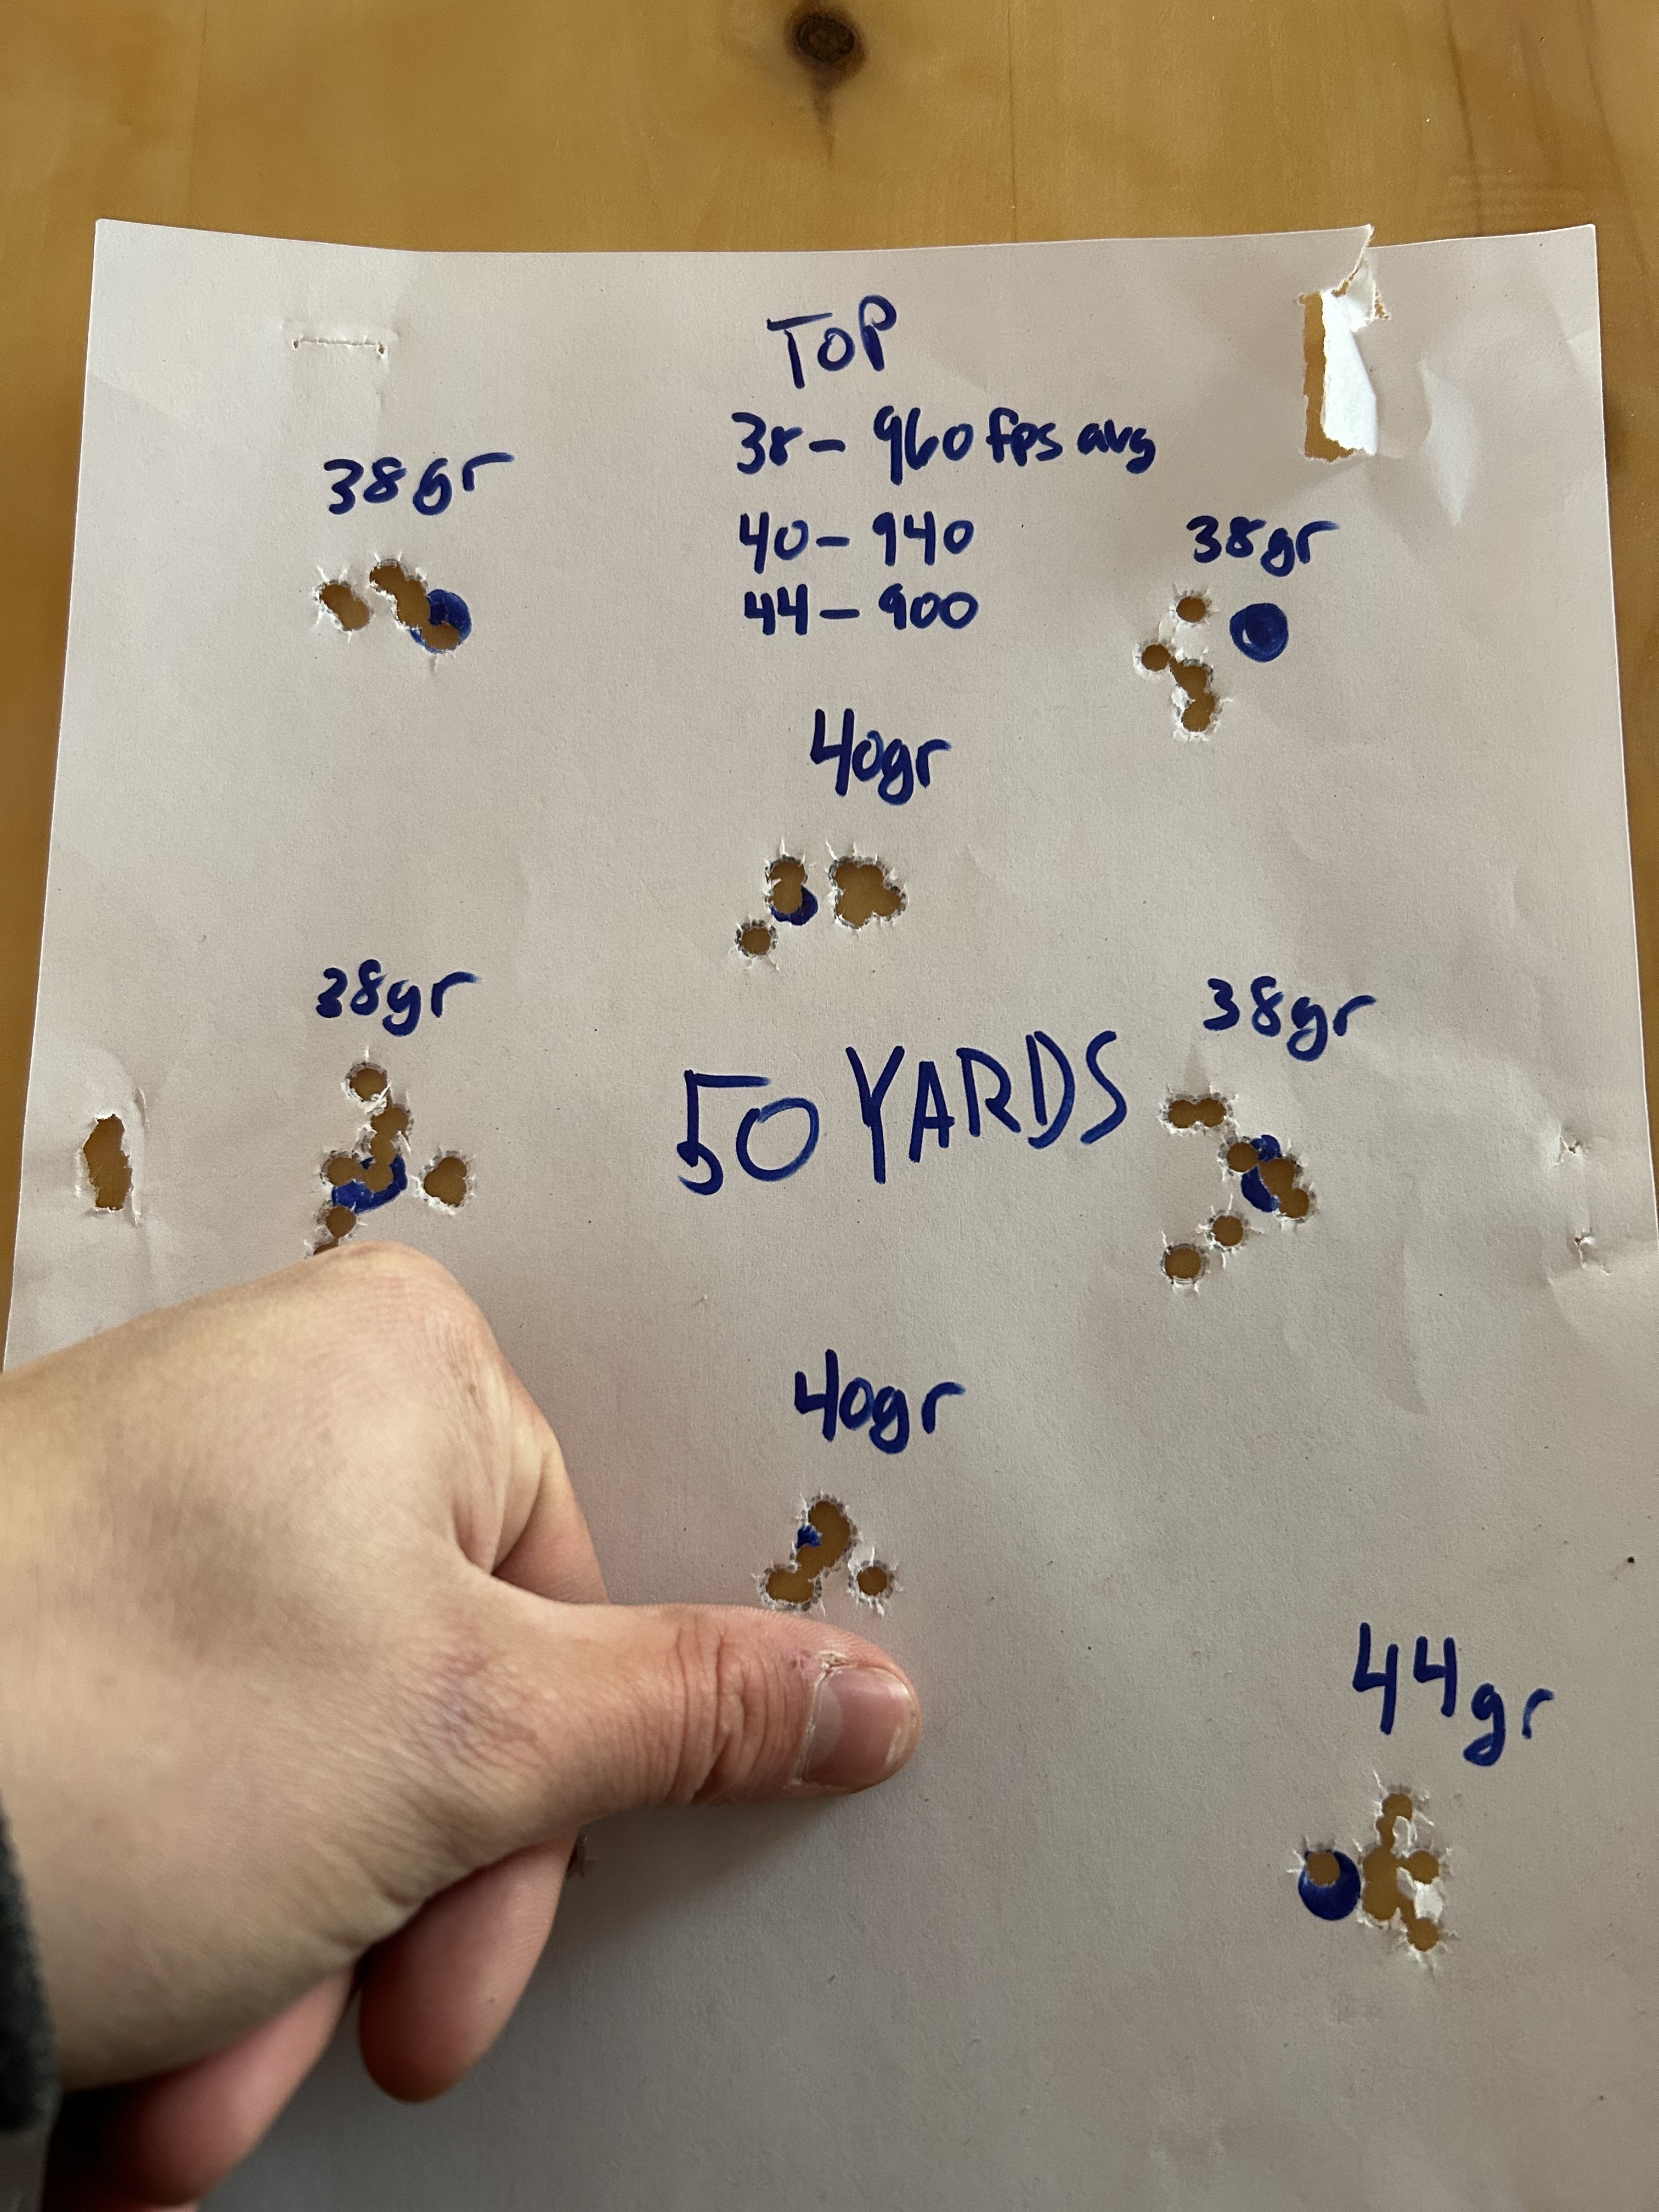 TOP
38 - 960 fps avg
40 - 940
44 - 900
38gr
38gr
40gr
38gr
38gr
50 YARDS
40gr
44gr